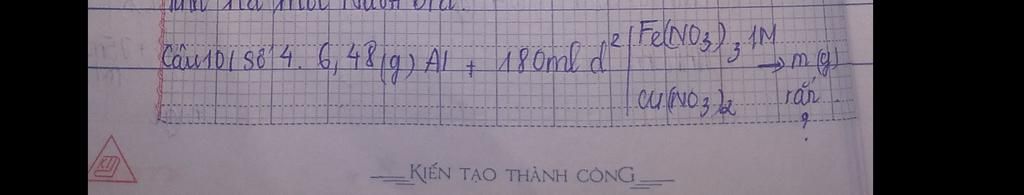 Câu 10/ Số 4. 6,48 (g) Al + 180ml d² Fe(NO3)3 1M → m (g)
Cu(NO3)2 rắn
?
KIẾN TẠO THÀNH CÔNG